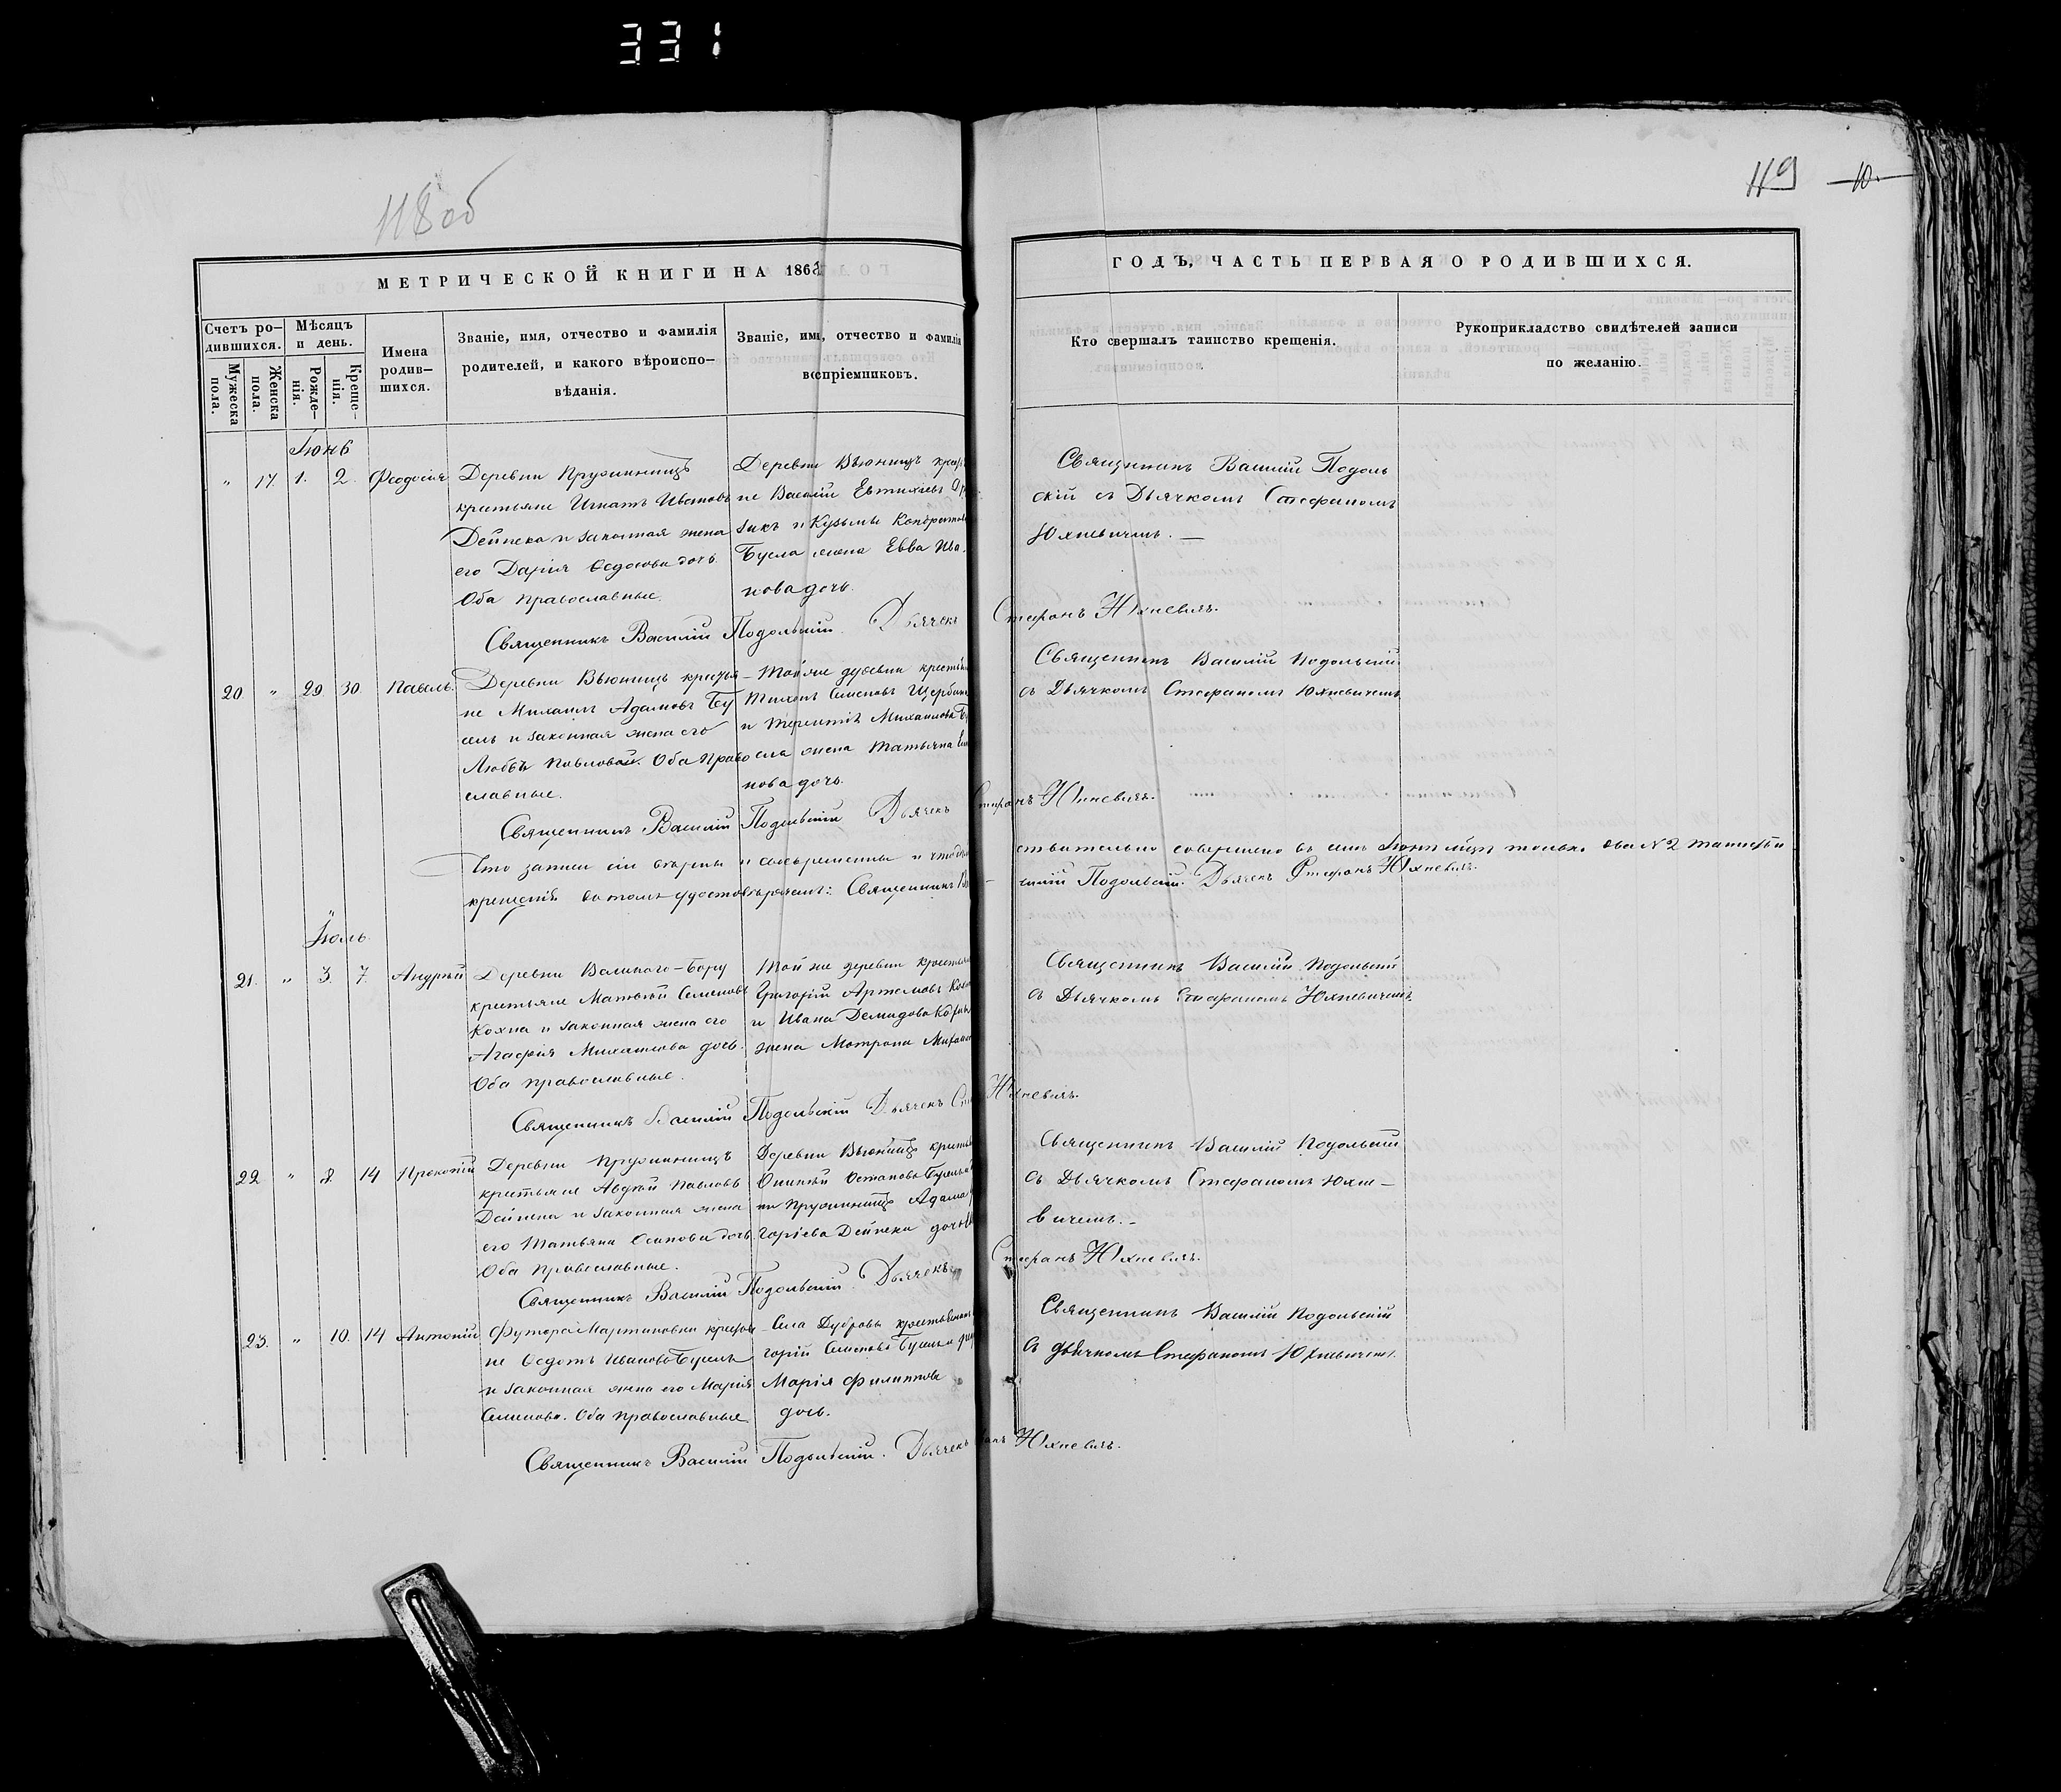 331
118об
119 10.
МЕТРИЧЕСКОЙ КНИГИ НА 1868
ГОДЪ, ЧАСТЬ ПЕРВАЯ О РОДИВШИХСЯ.
Счетъ ро-
дившихся.
Мужеска
пола.
Женска
пола.
Мѣсяцъ
и день.
Рожде-
нія.
Креще-
нія.
Имена
родив-
шихся.
Званіе, имя, отчество и фамилія
родителей, и какого вѣроиспо-
вѣданія.
Званіе, имя, отчество и фамилія
воспріемниковъ.
Кто свершалъ таинство крещенія.
Рукоприкладство свидѣтелей записи
по желанію.
Іюнь
" 17. 1. 2. Феодосія
Деревни Пружинищъ
крестьяне Игнатъ Ивановъ
Дейнека и законная жена
его Дарія Федосова дочь.
Оба православные.
Деревни Вьюнищъ
не Василій Евтихіевъ
и Кузьмы Кондратова
Бусла жена Евва Ива-
нова дочь.
Священникъ Василій Подоль
скій съ Дьячкомъ Стефаномъ
Юхневичемъ. —
Священникъ Василій Подольскій. Дьячекъ Стефанъ Юхневичъ.
20 " 29 30 Павелъ.
Деревни Вьюнищъ крестья-
не Михаилъ Адамовъ Бу
сель и законная жена его
Любвь Павлова. Оба право
славные.
Той же деревни
Тихонъ Семеновъ
и Терентія Михаилова
сла жена Татьяна
нова дочь.
Священникъ Василій Подольскій
съ Дьячкомъ Стефаномъ Юхневичемъ
Священникъ Василій Подольскій Дьячекъ Стефанъ Юхневичъ.
Что записи сіи вѣрны и своевременны и что
ствительно совершено въ семъ Іюнѣ мѣсяцѣ только два №2 таинства
крещенія въ томъ удостовѣряемъ: Священникъ
силій Подольскій. Дьячекъ Стефанъ Юхневичъ.
Іюль.
21. " 3. 7. Андрей
Деревни Великаго-Бору
крестьяне Матвѣй Семеновъ
Кохна и законная жена его
Агафія Михаилова дочь.
Оба православные.
Той же деревни
Григорій Артемовъ
и Ивана Демидова
жена Матрона
Священникъ Василій Подольскій
съ Дьячкомъ Стефаномъ Юхневичемъ
Священникъ Василій Подольскій Дьячекъ Юхневичъ.
22. " 8. 14 Прокопій
Деревни Пружинищъ
крестьяне Авдѣй Павловъ
Дейнека и законная жена
его Татьяна Осипова дочь.
Оба православные.
Деревни Вьюнищъ
Остаповъ
Пружинищъ Адама
горіева Дейнеки дочь
Священникъ Василій Подольскій
съ Дьячкомъ Стефаномъ Юхне-
вичемъ. –
Священникъ Василій Подольскій. Дьячекъ Стефанъ Юхневичъ.
23. " 10. 14 Антоній
Футора Мартиновки крестья-
не Федотъ Ивановъ Бусель
и законная жена его Марія
Семенова. Оба православные
Села Дубровы
горій Семеновъ Бусель и
Марія Филиппова
дочь.
Священникъ Василій Подольскій
съ Дьячкомъ Стефаномъ Юхневичемъ.
Священникъ Василій Подольскій. Дьячекъ Юхневичъ.